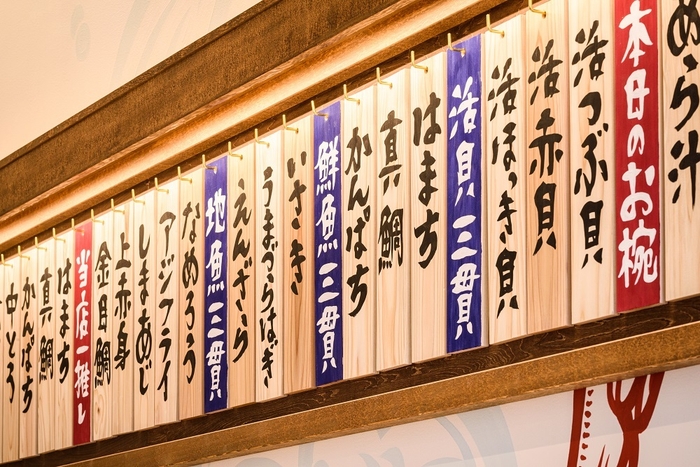 めら汁
本日のお椀
活つぶ貝
活赤貝
活ほっき貝
活貝三貫
はまち
真鯛
かんぱち
鮮魚三貫
いさき
うまづらはぎ
えんざら
地魚三貫
なめろう
アジフライ
しまあじ
上赤身
金目鯛
当店一推し
はまち
真鯛
かんぱち
中とろ